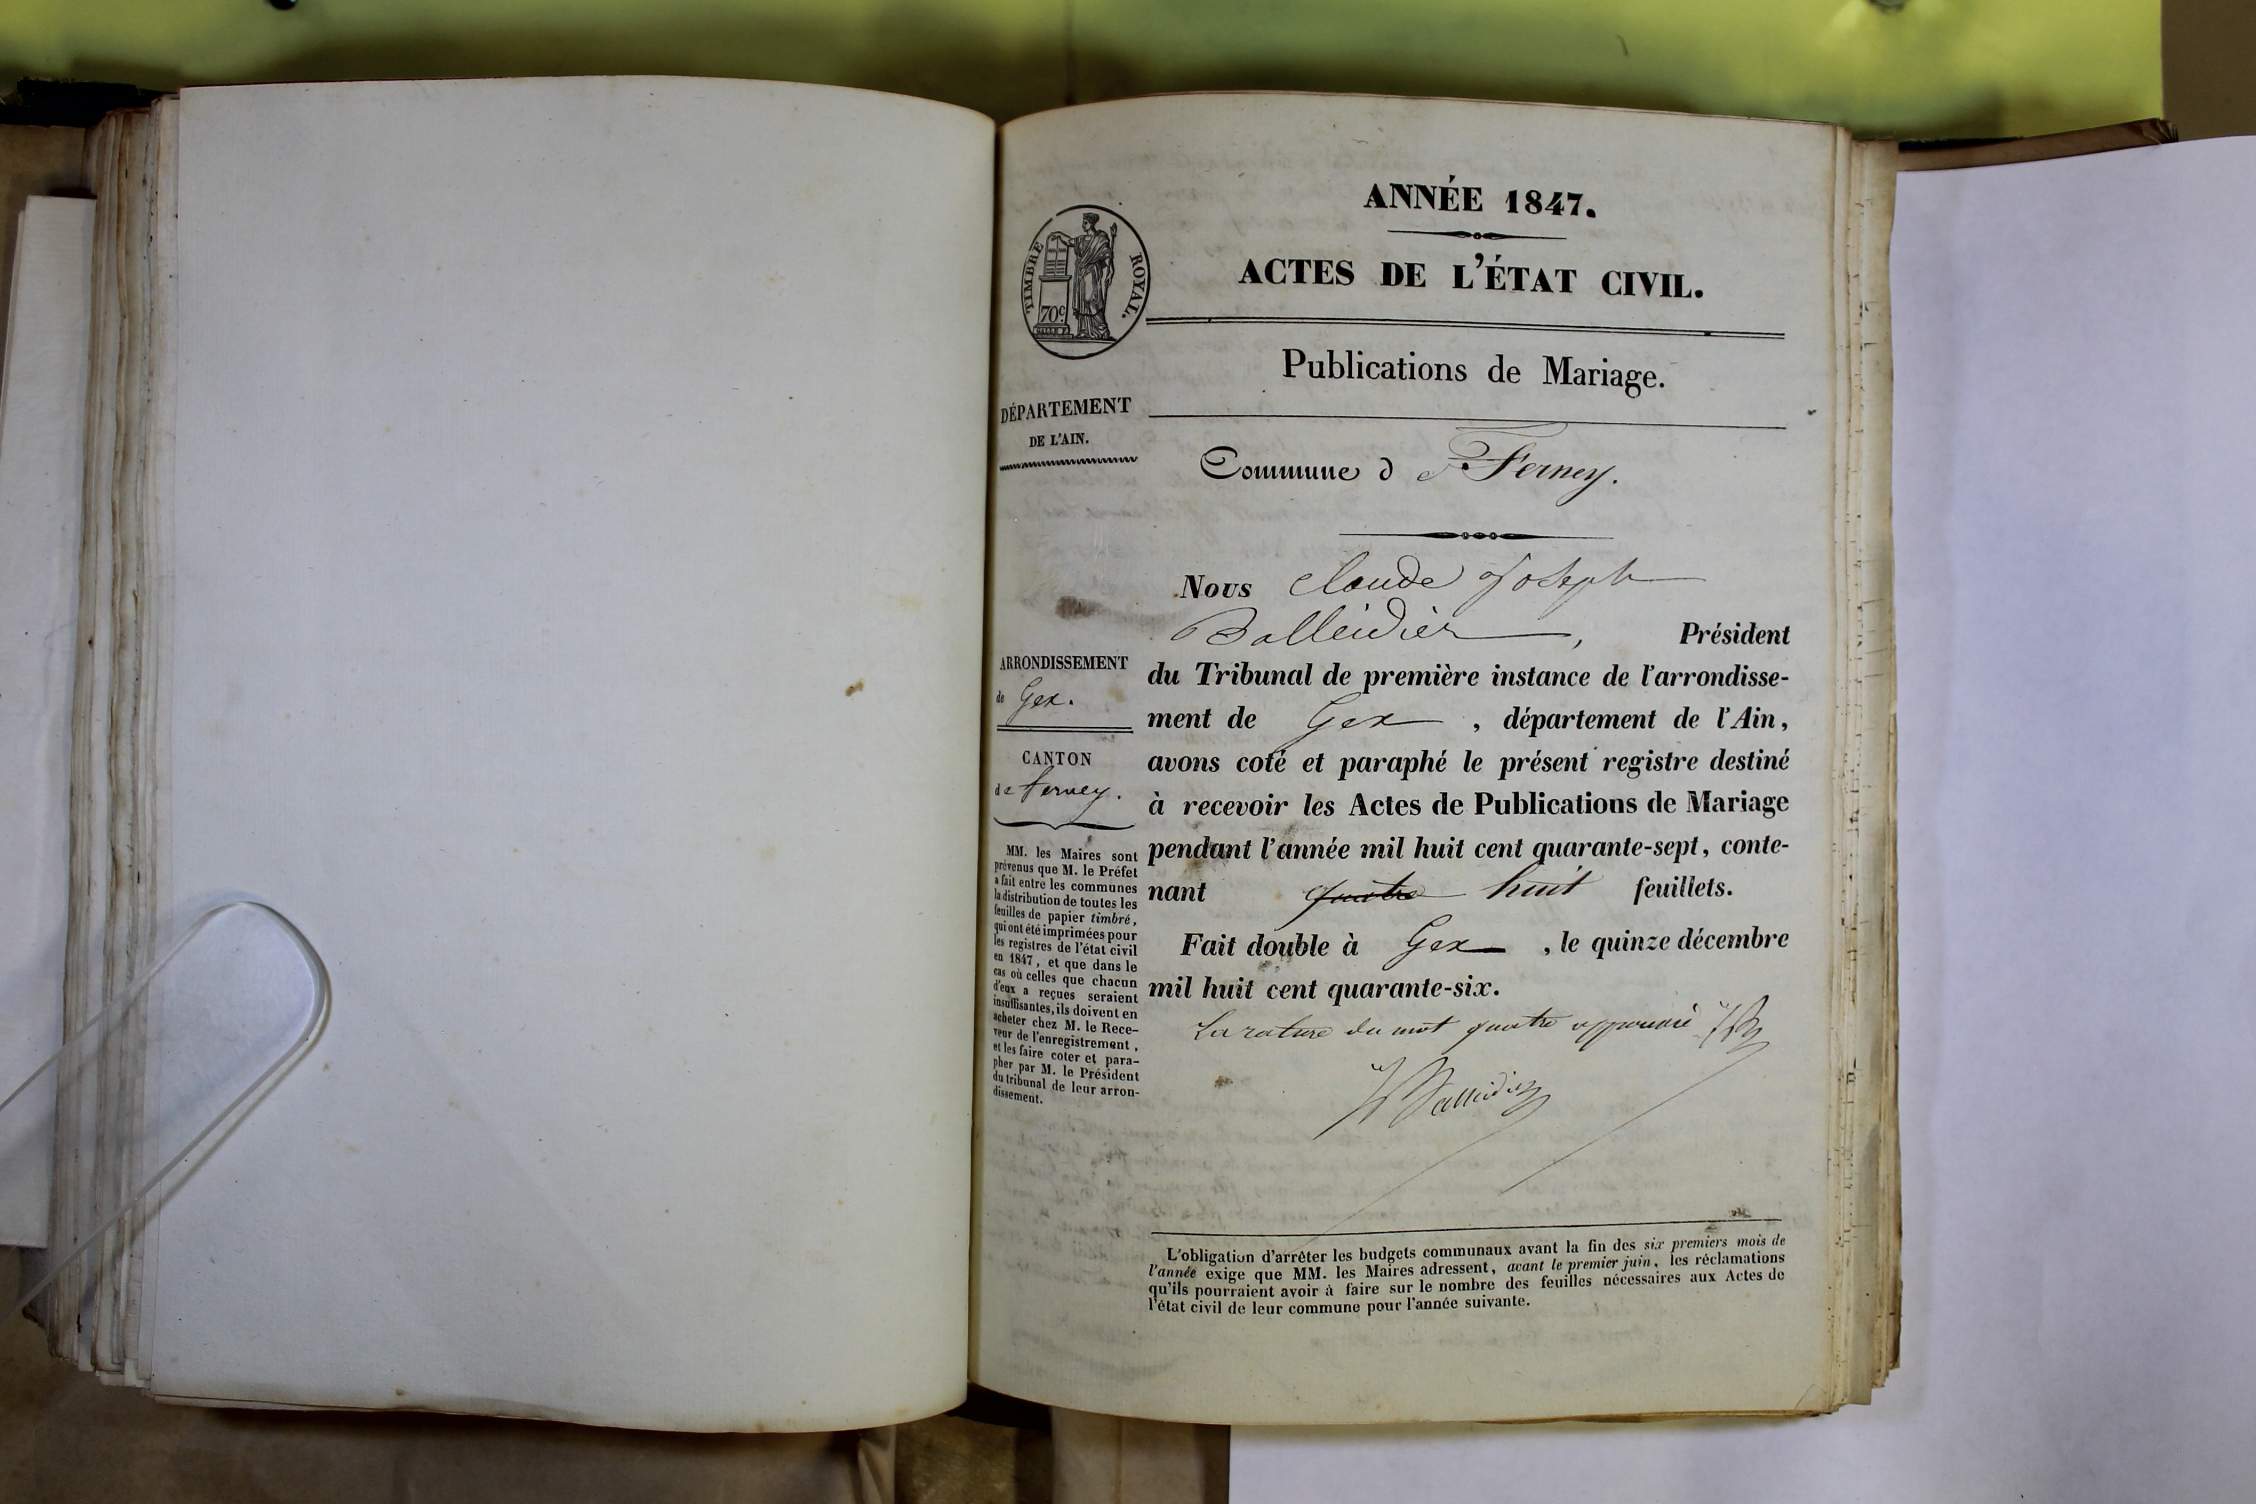 ANNÉE 1847.
ACTES DE L'ÉTAT CIVIL.
TIMBRE ROYAL.
70c
Publications de Mariage.
DÉPARTEMENT
DE L'AIN.
Commune de Ferney.
Nous Claude Joseph
Balleidier, Président
du Tribunal de première instance de l'arrondisse-
ment de Gex, département de l'Ain,
avons coté et paraphé le présent registre destiné
à recevoir les Actes de Publications de Mariage
pendant l'année mil huit cent quarante-sept, conte-
nant quatre huit feuillets.
Fait double à Gex, le quinze décembre
mil huit cent quarante-six.
La rature du mot quatre approuvée
Balleidier
ARRONDISSEMENT
de Gex.
CANTON
de Ferney.
MM. les Maires sont
prévenus que M. le Préfet
a fait entre les communes
la distribution de toutes les
feuilles de papier timbré,
qui ont été imprimées pour
les registres de l'état civil
en 1847, et que dans le
cas où celles que chacun
d'eux a reçues seraient
insuffisantes, ils doivent en
acheter chez M. le Rece-
veur de l'enregistrement,
et les faire coter et para-
pher par M. le Président
du tribunal de leur arron-
dissement.
L'obligation d'arrêter les budgets communaux avant la fin des six premiers mois de
l'année exige que MM. les Maires adressent, avant le premier juin, les réclamations
qu'ils pourraient avoir à faire sur le nombre des feuilles nécessaires aux Actes de
l'état civil de leur commune pour l'année suivante.